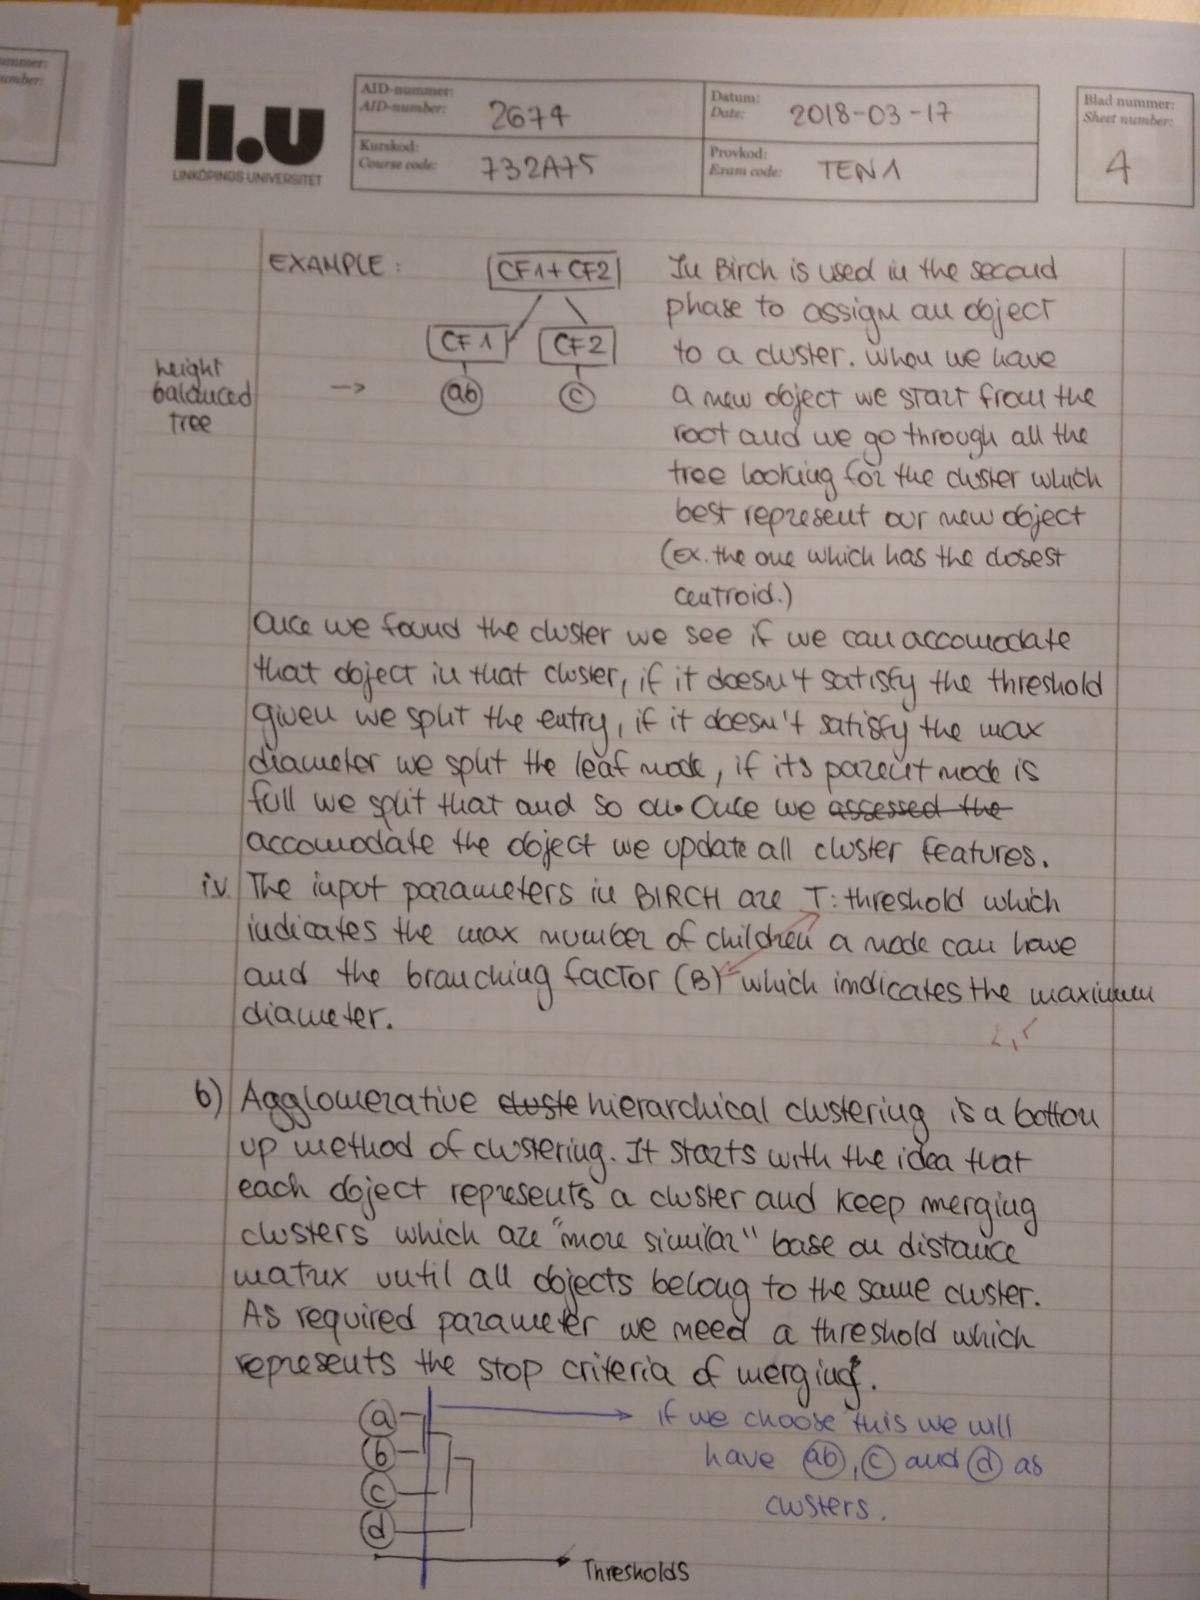 ummer:
umber:
li.u
LINKÖPINGS UNIVERSITET
AID-nummer:
AID-number: 2674
Datum:
Date: 2018-03-17
Blad nummer:
Sheet number:
4
Kurskod:
Course code: 732A75
Provkod:
Exam code: TEN1
EXAMPLE:
CF1+CF2
CF1 CF2
ab c
height
balanced
tree
→
In Birch is used in the second
phase to assign an object
to a cluster. When we have
a new object we start from the
root and we go through all the
tree looking for the cluster which
best represent our new object
(ex. the one which has the closest
centroid.)
Once we found the cluster we see if we can accomodate
that object in that cluster, if it doesn't satisfy the threshold
given we split the entry, if it doesn't satisfy the max
diameter we split the leaf node, if its parent node is
full we split that and so on. Once we assessed the
accomodate the object we update all cluster features.
iv. The input parameters in BIRCH are T: threshold which
indicates the max number of children a node can have
and the branching factor (B) which indicates the maximum
diameter.
b) Agglomerative cluste hierarchical clustering is a bottom
up method of clustering. It starts with the idea that
each object represents a cluster and keep merging
clusters which are "more similar" base on distance
matrix until all objects belong to the same cluster.
As required parameter we need a threshold which
represents the stop criteria of merging.
a
b
c
d
if we choose this we will
have ab, c and d as
clusters.
Thresholds